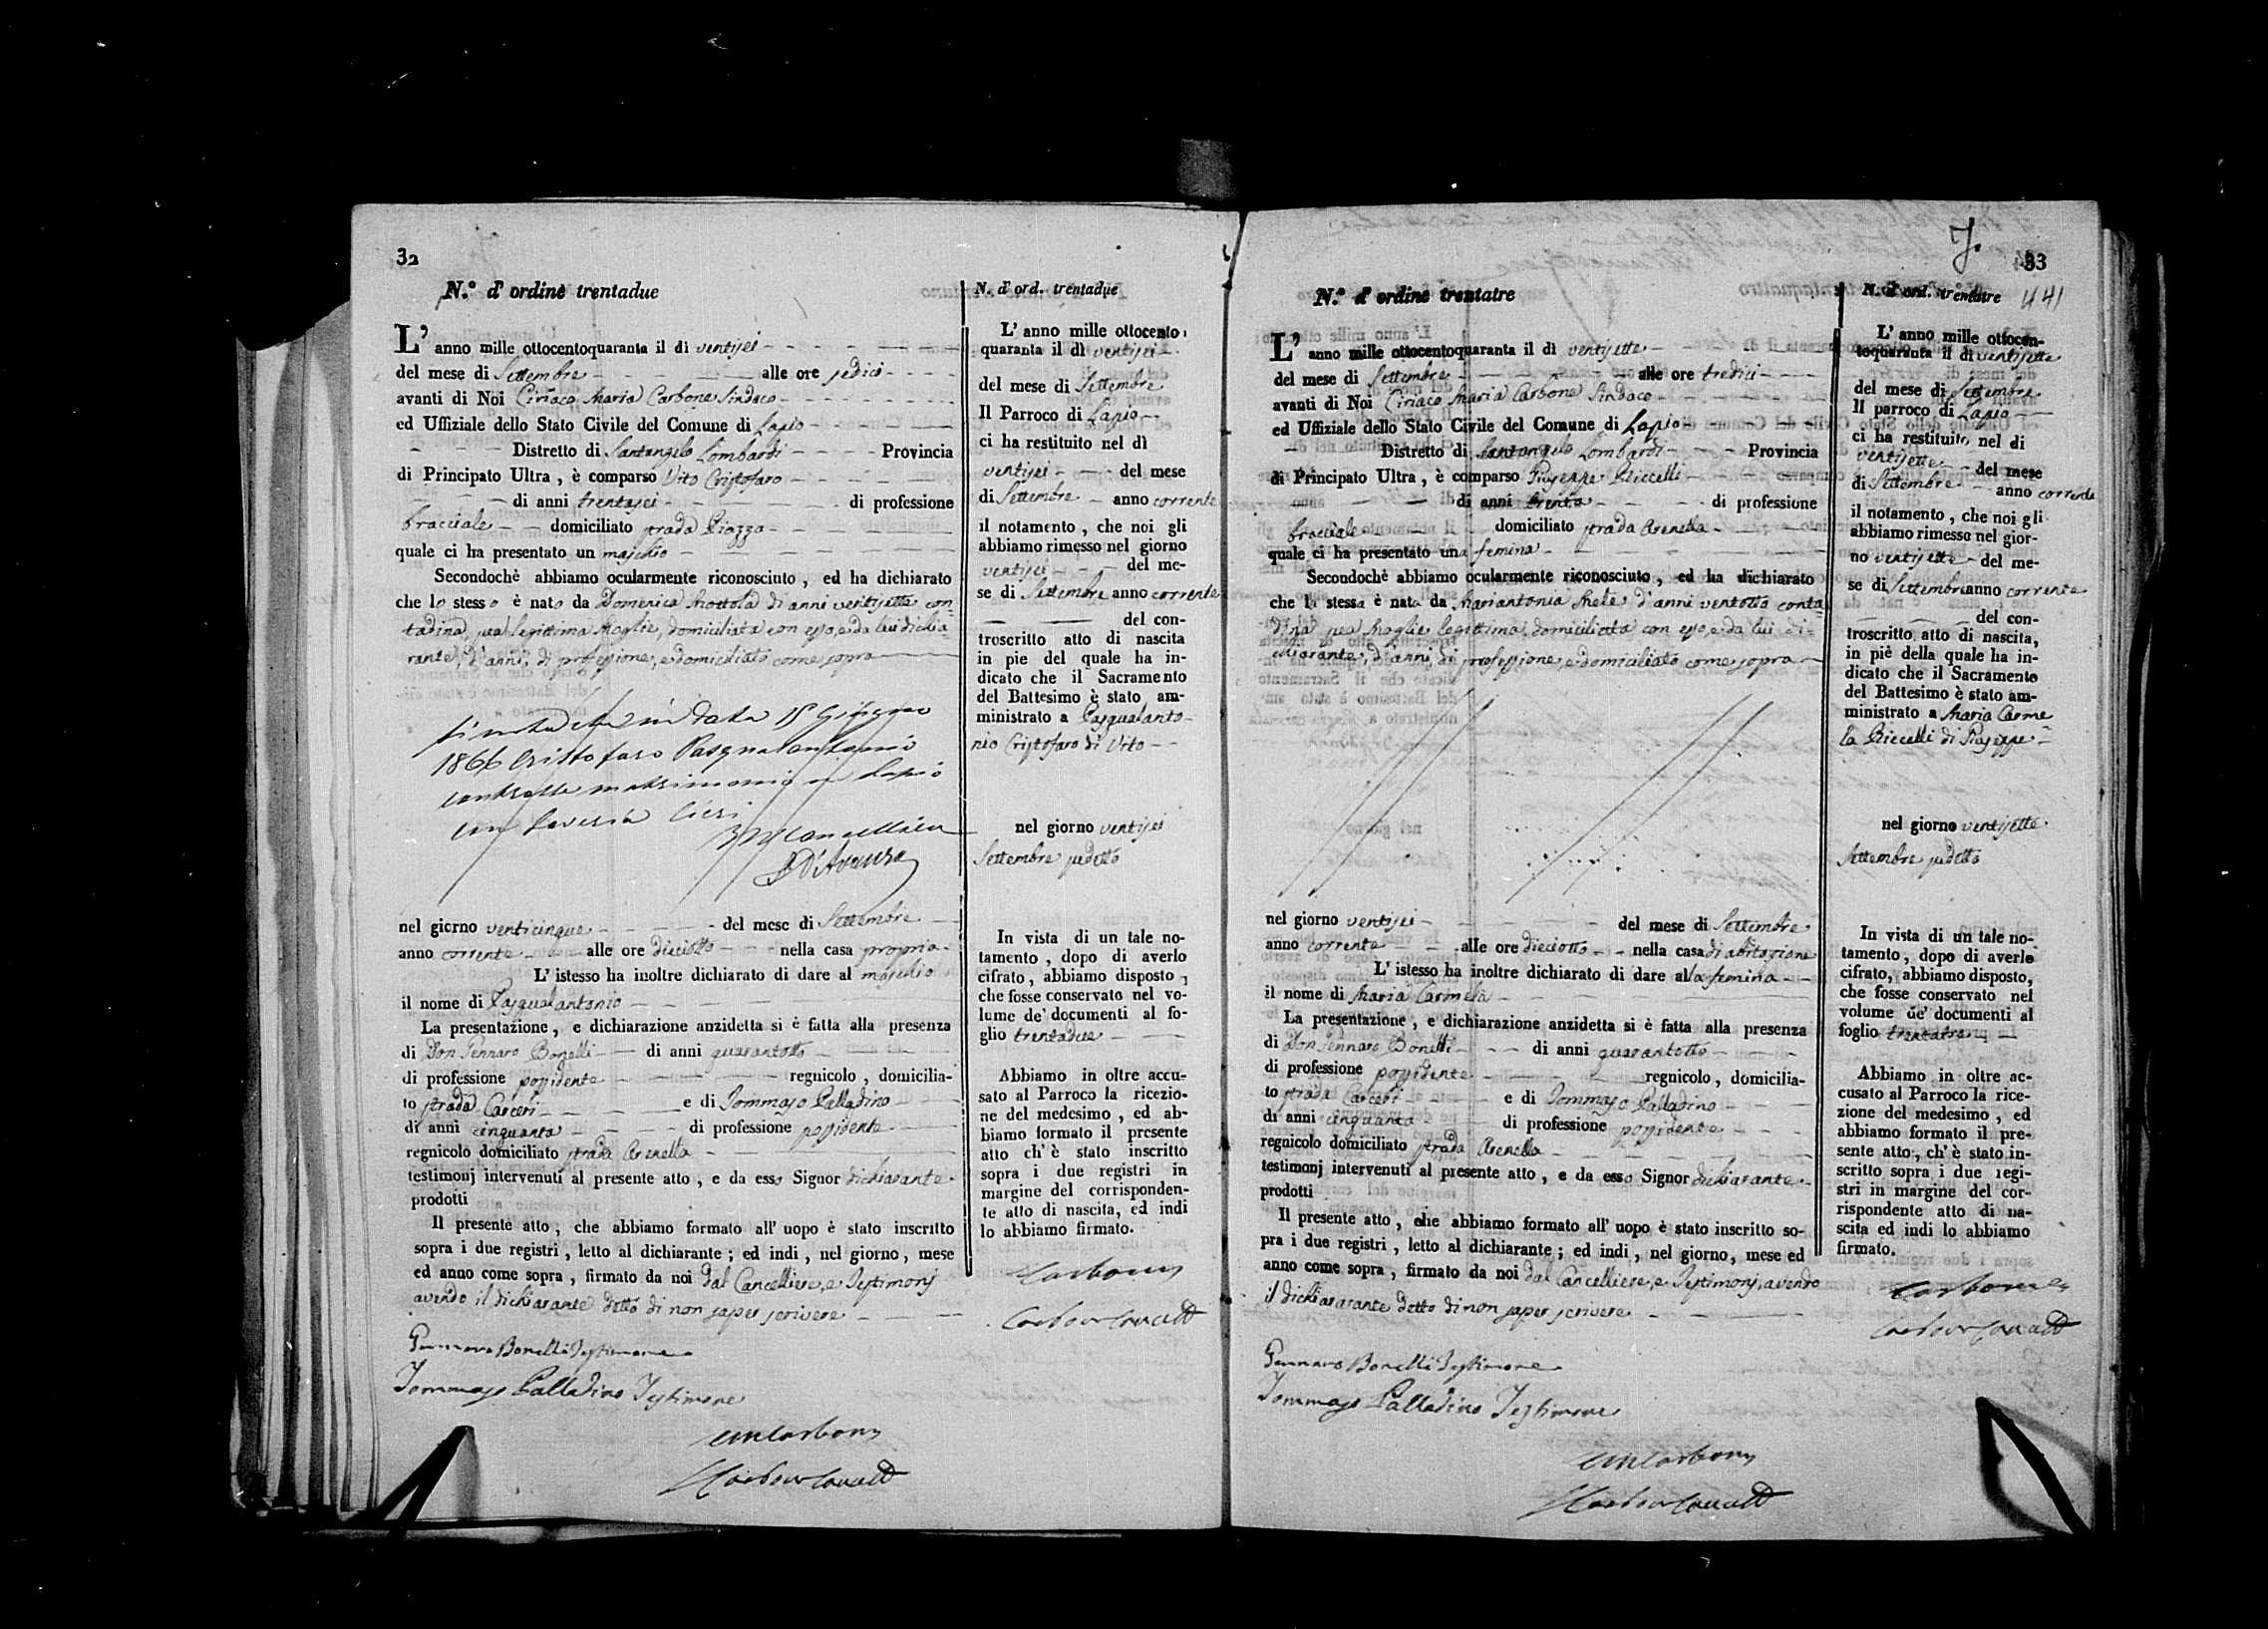 32
N.° d' ordine trentadue
L' anno mille ottocentoquaranta il dì ventisei
del mese di Settembre alle ore sedici
avanti di Noi Ciriaco Maria Carbone Sindaco
ed Uffiziale dello Stato Civile del Comune di Lapio
Distretto di Santangelo Lombardi Provincia
di Principato Ultra, è comparso Vito Cristofaro
di anni trentasei di professione
bracciale domiciliato strada Piazza
quale ci ha presentato un maschio
Secondochè abbiamo ocularmente riconosciuto, ed ha dichiarato
che lo stesso è nato da Domenica Mottola di anni ventisette con-
tadina, sua legittima Moglie, domiciliata con esso, e da lui dichia-
rante, d'anni, di professione, e domiciliato come sopra
in data 15 Giugno
1866 Cristofaro Pasqualantonio
contratto matrimonio in Lapio
con Saveria Cieri
Il Cancelliere
D'Avanzo
nel giorno venticinque del mese di Settembre
anno corrente alle ore dieciotto nella casa propria
L' istesso ha inoltre dichiarato di dare al maschio
il nome di Pasqualantonio
La presentazione, e dichiarazione anzidetta si è fatta alla presenza
di Don Gennaro Bonelli di anni quarantotto
di professione possidente regnicolo, domicilia-
to strada Carceri e di Tommaso Palladino
di anni cinquanta di professione possidente
regnicolo domiciliato strada Arenella
testimonj intervenuti al presente atto, e da esso Signor dichiarante
prodotti
Il presente atto, che abbiamo formato all' uopo è stato inscritto
sopra i due registri, letto al dichiarante; ed indi, nel giorno, mese
ed anno come sopra, firmato da noi dal Cancelliere, e Testimonj
avendo il dichiarante detto di non saper scrivere
Gennaro Bonelli Testimone
Tommaso Palladino Testimone
CMCarbone
N. d' ord. trentadue
L' anno mille ottocento
quaranta il dì ventisei
del mese di Settembre
Il Parroco di Lapio
ci ha restituito nel dì
ventisei del mese
di Settembre anno corrente
il notamento, che noi gli
abbiamo rimesso nel giorno
ventisei del me-
se di Settembre anno corrente
del con-
troscritto atto di nascita
in pie del quale ha in-
dicato che il Sacramento
del Battesimo è stato am-
ministrato a Pasqualanto-
nio Cristofaro di Vito
nel giorno ventisei
Settembre sudetto
In vista di un tale no-
tamento, dopo di averlo
cifrato, abbiamo disposto,
che fosse conservato nel vo-
lume de' documenti al fo-
glio trentadue
Abbiamo in oltre accu-
sato al Parroco la ricezio-
ne del medesimo, ed ab-
biamo formato il presente
atto ch' è stato inscritto
sopra i due registri in
margine del corrisponden-
te atto di nascita, ed indi
lo abbiamo firmato.
Carbone
33
441
N.° d' ordine trentatre
L' anno mille ottocentoquaranta il dì ventisette
del mese di Settembre alle ore tredici
avanti di Noi Ciriaco Maria Carbone Sindaco
ed Uffiziale dello Stato Civile del Comune di Lapio
Distretto di Santangelo Lombardi Provincia
di Principato Ultra, è comparso Giuseppe Riccelli
di anni trenta di professione
bracciale domiciliato strada Arenella
quale ci ha presentato una femina
Secondochè abbiamo ocularmente riconosciuto, ed ha dichiarato
che la stessa è nata da Mariantonia Mele d'anni ventotto conta-
dina sua Moglie legittima, domiciliata con esso, e da lui di-
chiarante, d'anni, di professione, e domiciliato come sopra
nel giorno ventisei del mese di Settembre
anno corrente alle ore dieciotto nella casa di abitazione
L' istesso ha inoltre dichiarato di dare alla femina
il nome di Maria Carmela
La presentazione, e dichiarazione anzidetta si è fatta alla presenza
di Don Gennaro Bonelli di anni quarantotto
di professione possidente regnicolo, domicilia-
to strada Carceri e di Tommaso Palladino
di anni cinquanta di professione possidente
regnicolo domiciliato strada Arenella
testimonj intervenuti al presente atto, e da esso Signor dichiarante
prodotti
Il presente atto, che abbiamo formato all' uopo è stato inscritto so-
pra i due registri, letto al dichiarante; ed indi, nel giorno, mese ed
anno come sopra, firmato da noi dal Cancelliere, e Testimonj, avendo
il dichiararante detto di non saper scrivere
Gennaro Bonelli Testimone
Tommaso Palladino Testimone
CMCarbone
N. d' ord. trentatre
L' anno mille ottocen-
toquaranta il dì ventisette
del mese di Settembre
Il parroco di Lapio
ci ha restituito nel dì
ventisette del mese
di Settembre anno corrente
il notamento, che noi gli
abbiamo rimesso nel gior-
no ventisette del me-
se di Settembre anno corrente
del con-
troscritto atto di nascita,
in piè della quale ha in-
dicato che il Sacramento
del Battesimo è stato am-
ministrato a Maria Carme
la Riccelli di Giuseppe
nel giorno ventisette
Settembre sudetto
In vista di un tale no-
tamento, dopo di averlo
cifrato, abbiamo disposto,
che fosse conservato nel
volume de' documenti al
foglio trentatre
Abbiamo in oltre ac-
cusato al Parroco la rice-
zione del medesimo, ed
abbiamo formato il pre-
sente atto, ch' è stato in-
scritto sopra i due regi-
stri in margine del cor-
rispondente atto di na-
scita ed indi lo abbiamo
firmato.
Carbone